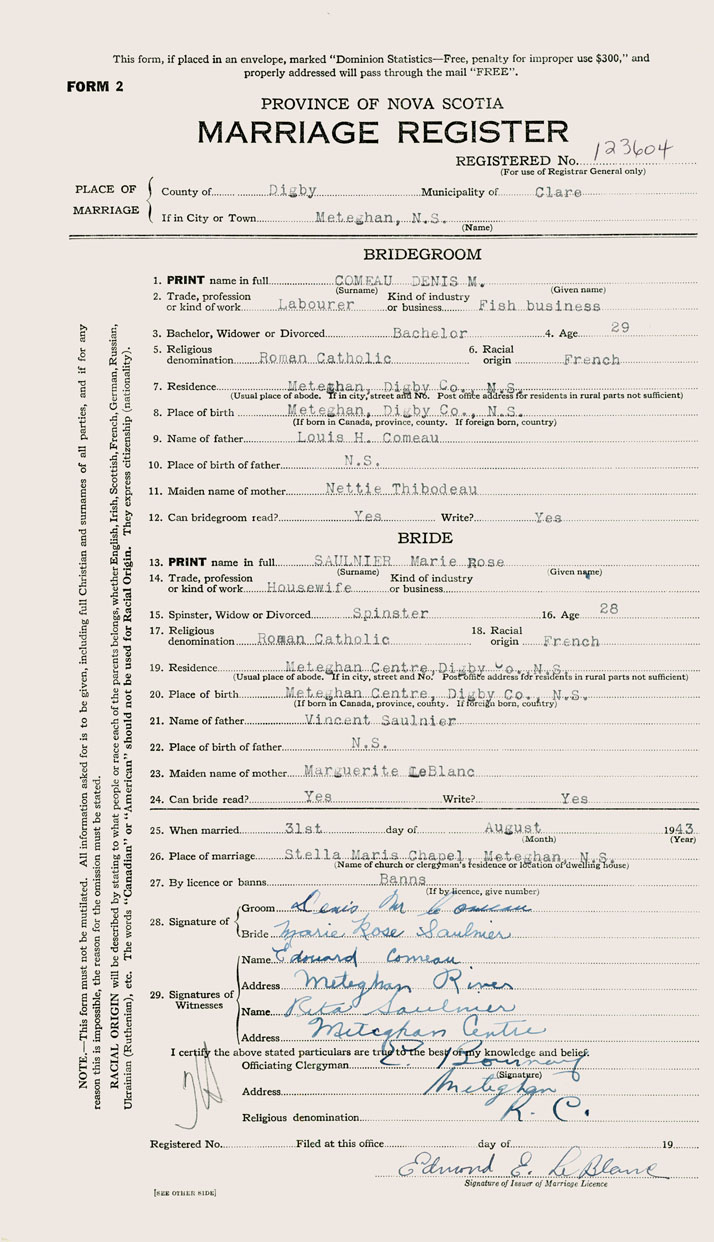 This form, if placed in an envelope, marked "Dominion Statistics—Free, penalty for improper use $300," and
properly addressed will pass through the mail "FREE".
FORM 2
PROVINCE OF NOVA SCOTIA
MARRIAGE REGISTER
REGISTERED No. 123604
(For use of Registrar General only)
PLACE OF MARRIAGE
County of Digby Municipality of Clare
If in City or Town Meteghan, N.S.
(Name)
BRIDEGROOM
1. PRINT name in full COMEAU DENIS M.
(Surname) (Given name)
2. Trade, profession or kind of work Labourer Kind of industry or business Fish business
3. Bachelor, Widower or Divorced Bachelor 4. Age 29
5. Religious denomination Roman Catholic 6. Racial origin French
7. Residence Meteghan, Digby Co., N.S.
(Usual place of abode. If in city, street and No. Post office address for residents in rural parts not sufficient)
8. Place of birth Meteghan, Digby Co., N.S.
(If born in Canada, province, county. If foreign born, country)
9. Name of father Louis H. Comeau
10. Place of birth of father N.S.
11. Maiden name of mother Nettie Thibodeau
12. Can bridegroom read? Yes Write? Yes
BRIDE
13. PRINT name in full SAULNIER Marie Rose
(Surname) (Given name)
14. Trade, profession or kind of work Housewife Kind of industry or business
15. Spinster, Widow or Divorced Spinster 16. Age 28
17. Religious denomination Roman Catholic 18. Racial origin French
19. Residence Meteghan Centre, Digby Co. N.S.
(Usual place of abode. If in city, street and No. Post office address for residents in rural parts not sufficient)
20. Place of birth Meteghan Centre, Digby Co., N.S.
(If born in Canada, province, county. If foreign born, country)
21. Name of father Vincent Saulnier
22. Place of birth of father N.S.
23. Maiden name of mother Marguerite LeBlanc
24. Can bride read? Yes Write? Yes
25. When married 31st day of August 1943
(Month) (Year)
26. Place of marriage Stella Maris Chapel, Meteghan, N.S.
(Name of church or clergyman's residence or location of dwelling house)
27. By licence or banns Banns
(If by licence, give number)
28. Signature of
Groom Denis M Comeau
Bride Marie Rose Saulnier
29. Signatures of Witnesses
Name Edouard Comeau
Address Meteghan River
Name Rita Saulnier
Address Meteghan Centre
I certify the above stated particulars are true to the best of my knowledge and belief.
Officiating Clergyman E.
(Signature)
Address Meteghan
Religious denomination R. C.
Registered No. Filed at this office day of 19
Edmond E. LeBlanc
Signature of Issuer of Marriage Licence
[SEE OTHER SIDE]
NOTE.—This form must not be mutilated. All information asked for is to be given, including full Christian and surnames of all parties, and if for any
reason this is impossible, the reason for the omission must be stated.
RACIAL ORIGIN will be described by stating to what people or race each of the parents belongs, whether English, Irish, Scottish, French, German, Russian,
Ukrainian (Ruthenian), etc. The words "Canadian" or "American" should not be used for Racial Origin. They express citizenship (nationality).